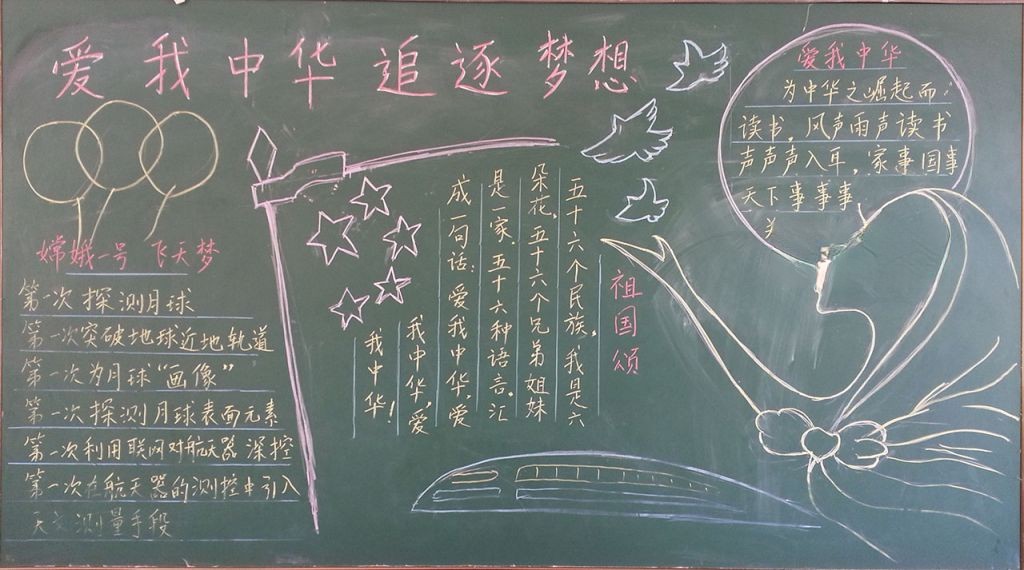 爱我中华 追逐梦想
嫦娥一号 飞天梦
第一次探测月球
第一次突破地球近地轨道
第一次为月球“画像”
第一次探测月球表面元素
第一次利用联网对航天器深控
第一次在航天器的测控中引入
天文测量手段
祖国颂
五十六个民族，我是六
朵花，五十六个兄弟姐妹
是一家，五十六种语言，汇
成一句话：爱我中华，爱
我中华，爱
我中华！
爱我中华
为中华之崛起而
读书，风声雨声读书
声声声入耳，家事国事
天下事事事